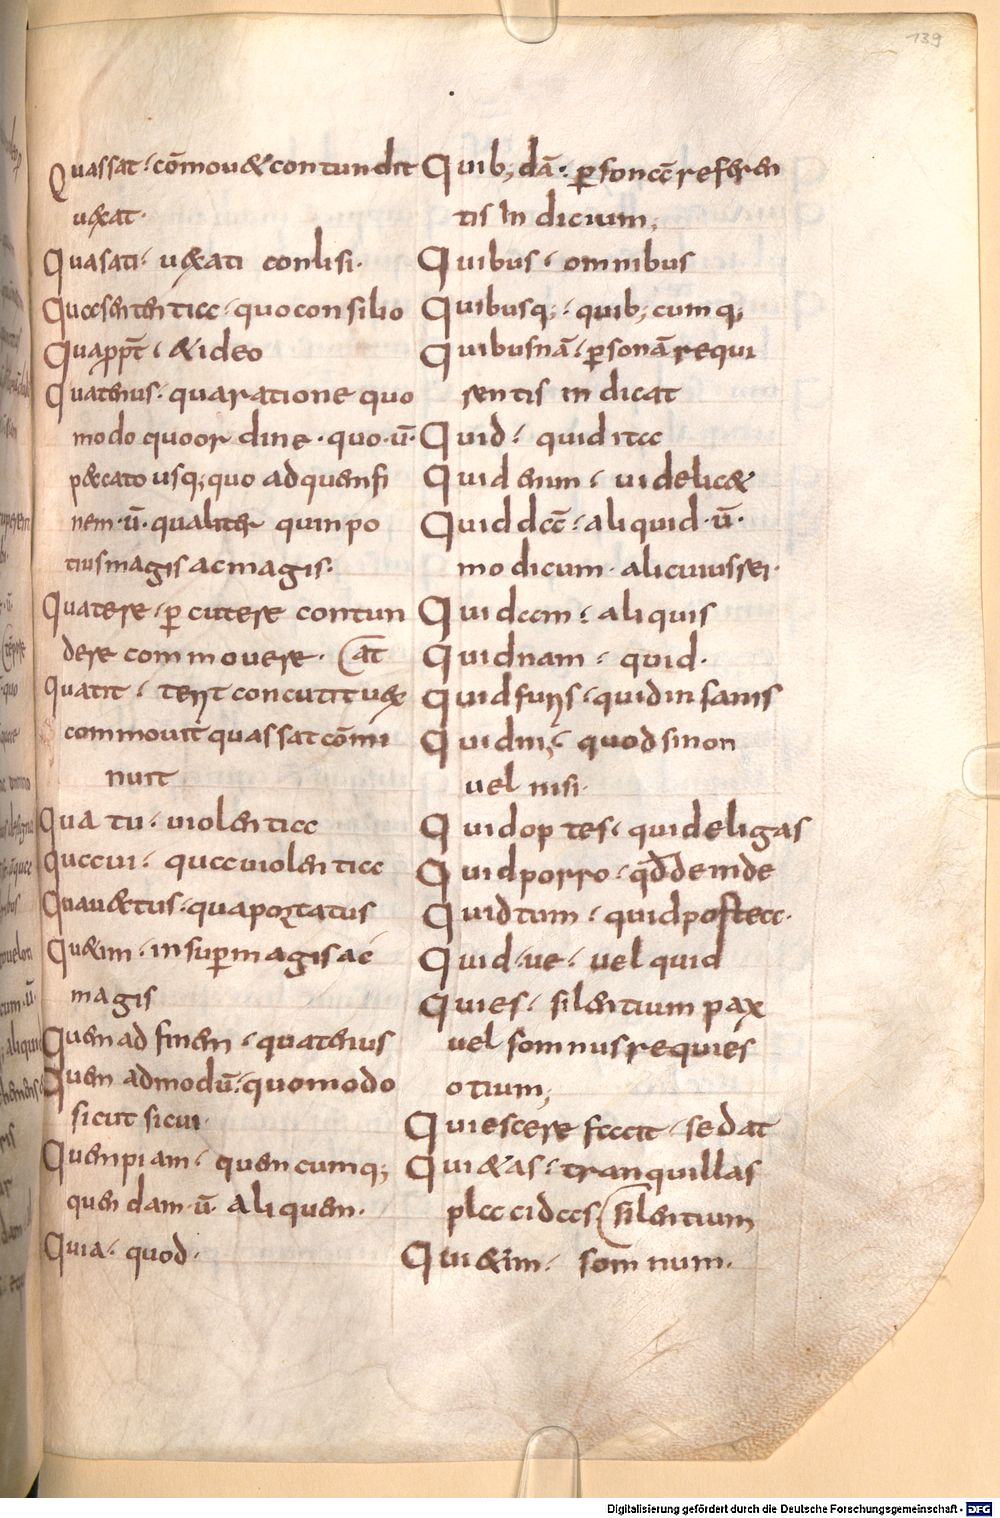 139
Quassat · cōmou& contundit
uexat·
Quasati · uexati conlisi·
Quasententia · quo consilio
Quapp̄t · & ideo
Quatenus · qua ratione quo
modo quo ordine · quo · ū·
p&cato usq; quo ad quem fi
nem · ū · qualiter quin po
tius magis ac magis·
Quatere · ꝑcutere contun
dere commouere· (at
Quatit · terit concutit uex
commouit quassat cōmi
nuit
Quatu · uiolentia
Quaui · qua uiolentia
Quau&us · qua portatus
Qu&im · insuꝑ magis ac
magis
Quem ad finem · quatenus
Quem admodū · quomodo
sicut sicui·
Quempiam · quem cumq;
quem dam · ū · aliquem·
Quia · quod·
Quib; dā · ꝑsonā referen
tis indicium;
Quibus · omnibus
Quibusq; · quib; cumq;
Quibusnā · ꝑsonā requi
rentis indicat
Quid · quid ita
Quid enim · uidelic&
Quiddā · aliquid · ū·
modicum · alicuius rei·
Quidam · aliquis
Quidnam · quid·
Quid furis · quid insanis
Quidni; · quod si non
uel nisi·
Quid optes · quid eligas
Quid porro · qđ deinde
Quid tum · quid postea·
Quid · ue · uel quid
Quies · silentium pax
uel somnus requies
otium;
Quiescere facit · sedat
Qui&as · tranquillas
placidas (silentium
Qui&im · somnum·
Digitalisierung gefördert durch die Deutsche Forschungsgemeinschaft - DFG